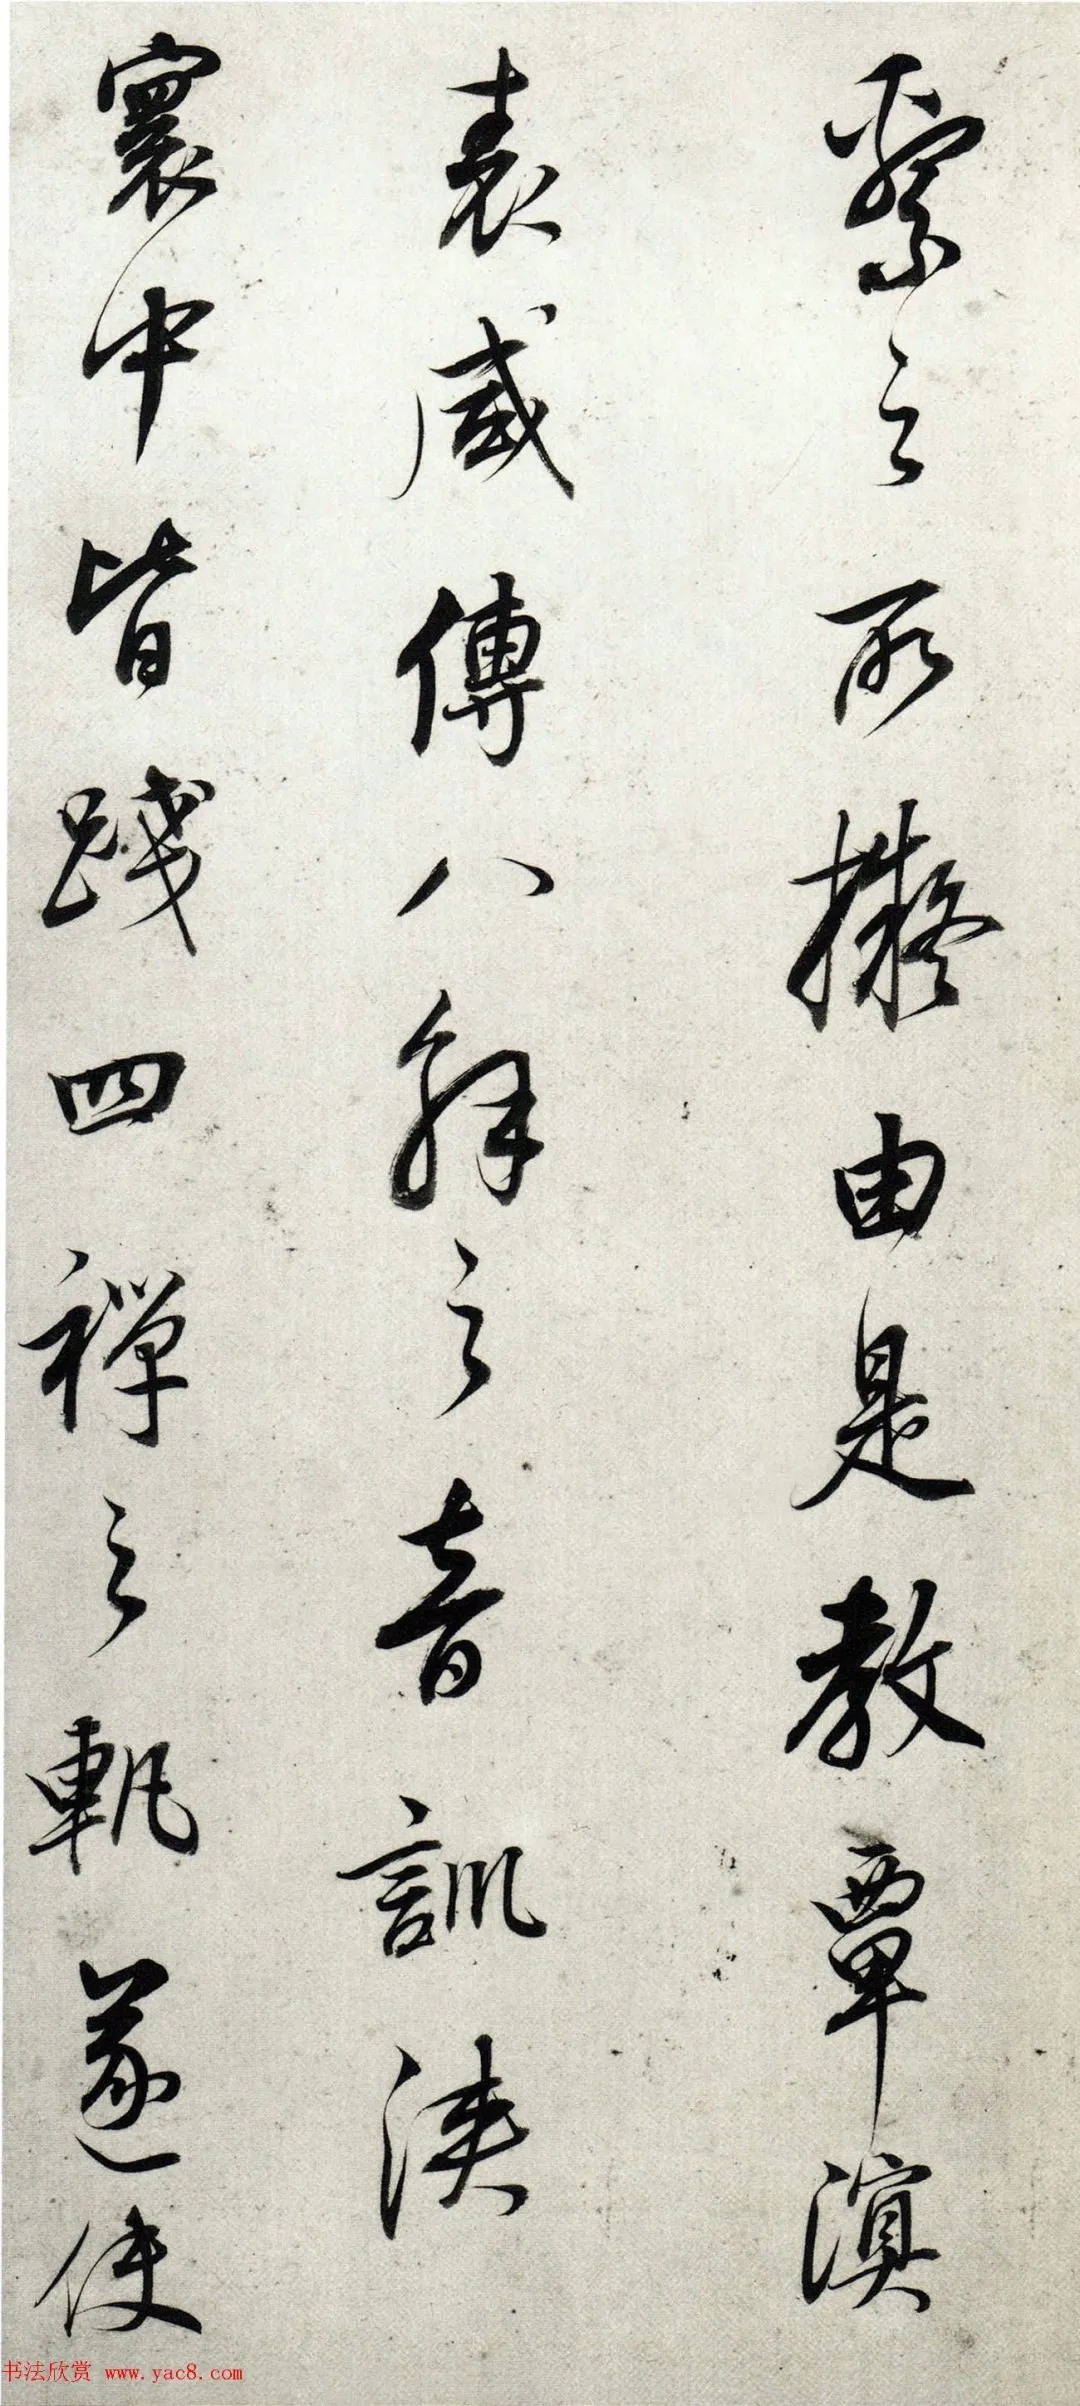 繄之所擬由是教覃溟
表咸傳八解之音訓浹
寰中皆踐四禪之軌遂使
书法欣赏 www.yac8.com